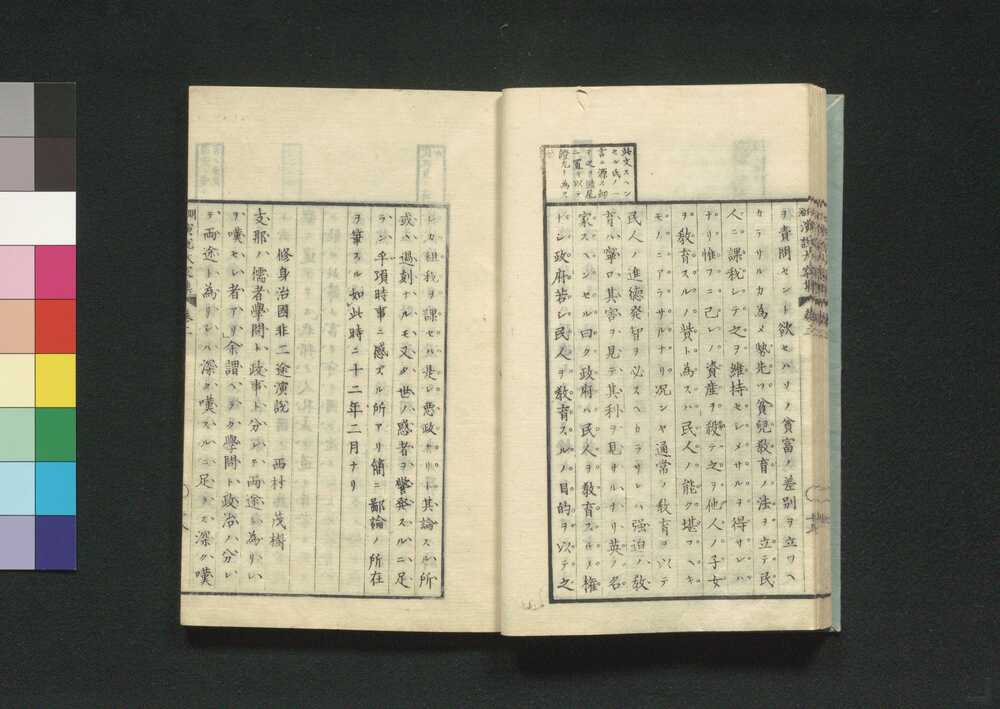 ヲ責問セント欲セハソノ貧富ノ差別ヲ立ツヘ
カラサルカ為メ勢先ツ貧児教育ノ法ヲ立テ民
人ニ課税シテ之ヲ維持セシメサルヲ得サレハ
ナリ惟フニ己レノ資産ヲ殺テ之ヲ他人ノ子女
ヲ教育スルノ貲ト為スハ民人ノ能ク堪フヘキ
モノニアラサルナリ況ンヤ通常ノ教育ヲ以テ
民人ノ進徳発智ヲ必スヘカラサレハ强迫ノ教
育ハ寧ロ其害ヲ見テ其利ヲ見サルナリ英ノ名
家スヘンセル曰ク政府ハ民人ヲ教育スルノ權
ナシ政府若シ民人ヲ教育スルノ目的ヲ以テ之
此文スヘン
セル氏ノ一
言ニ源ス即
チ之ヲ結尾
ニ置キ以テ
證左ト為ス
レカ租税ヲ課セハ是レ悪政ナリト其論スル所
或ハ過刻ナルモ又タ世ノ惑者ヲ警発スルニ足
ラン乎項時事ニ感スル所アリ簡ニ鄙論ノ所在
ヲ筆スル如此時ニ十二年二月ナリ
修身治國非二途演説 西村茂樹
支那ノ儒者學問ト政事ト分レテ兩途ト為リシ
ヲ嘆セシ者アリ余謂ヘラク學問ト政治ハ分レ
テ兩途ト為リシハ深ク嘆スルニ足ラス深ク嘆